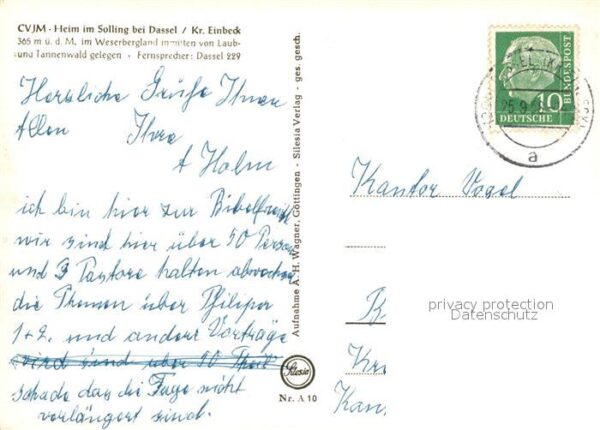 CVJM - Heim im Solling bei Dassel / Kr. Einbeck
365 m ü. d. M. im Weserbergland inmitten von Laub-
und Tannenwald gelegen • Fernsprecher: Dassel 229
Herzliche Grüße Ihnen
Allen Ihre
A Holm
ich bin hier zur Bibelfreizt
wir sind hier über 50 Person
und 3 Pastore halten abwechse
die Themen über Philiper
1+2. und andere Vorträge
wird sind über 50
schade das die Tage nicht
verlängert sind.
Aufnahme A. H. Wagner, Göttingen - Silesia Verlag - ges. gesch.
Silesia
Nr. A 10
10
DEUTSCHE
BUNDESPOST
25.9.
a
Kantor Vogel
K
Kr
Kan
privacy protection
Datenschutz